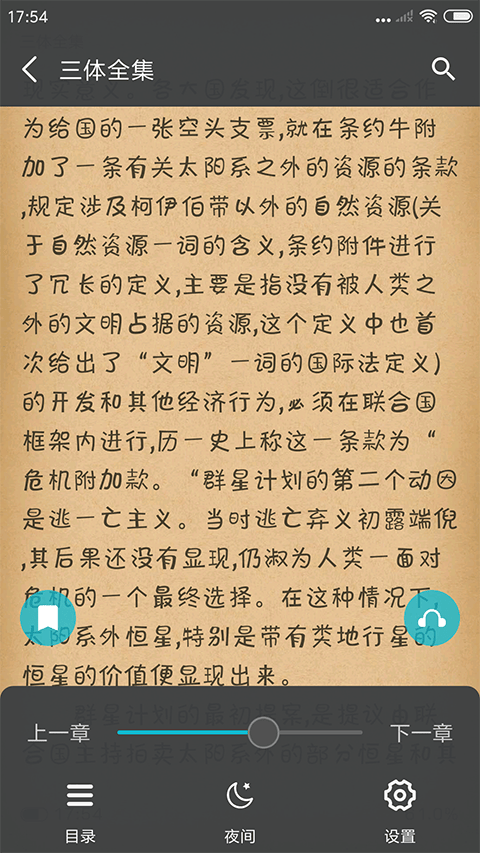 17:54
三体全集
为给国的一张空头支票,就在条约牛附
加了一条有关太阳系之外的资源的条款
,规定涉及柯伊伯带以外的自然资源(关
于自然资源一词的含义,条约附件进行
了冗长的定义,主要是指没有被人类之
外的文明占据的资源,这个定义中也首
次给出了“文明”一词的国际法定义)
的开发和其他经济行为,必须在联合国
框架内进行,历一史上称这一条款为“
危机附加款。“群星计划的第二个动因
是逃一亡主义。当时逃亡弃义初露端倪
,其后果还没有显现,仍淑为人类一面对
危机的一个最终选择。在这种情况下,
太阳系外恒星,特别是带有类地行星的
恒星的价值便显现出来。
群星计划的最初提案,是提议由联
合国主持拍卖太阳系外的部分恒星和其
上一章
下一章
目录
夜间
设置